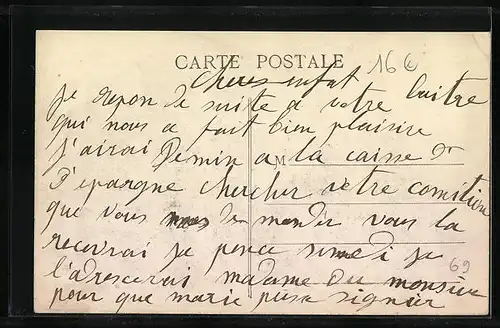 CARTE POSTALE
16 €
Cheres enfat
je repon de suite a votre laitre
qui nous a fait bien plaisire
j'airai Demin a la caisse Dr
D'epargne chercher votre comition
que vous nous demandér vous la
recevrai je pence samedi je
l'adrescerai madame ou monsieur
pour que marie puse signiér
M
69